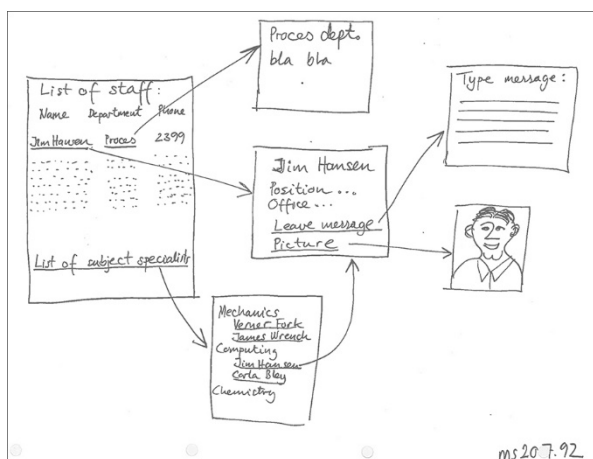 List of staff:
Name Department Phone
Jim Hansen Proces 2399
List of subject specialists
Proces dept.
bla bla
.
Jim Hansen
Position ...
Office ...
Leave message
Picture
Type message:
Mechanics
Verner Fork
James Wrench
Computing
Jim Hansen
Carla Bley
Chemistry
ms 20.7.92